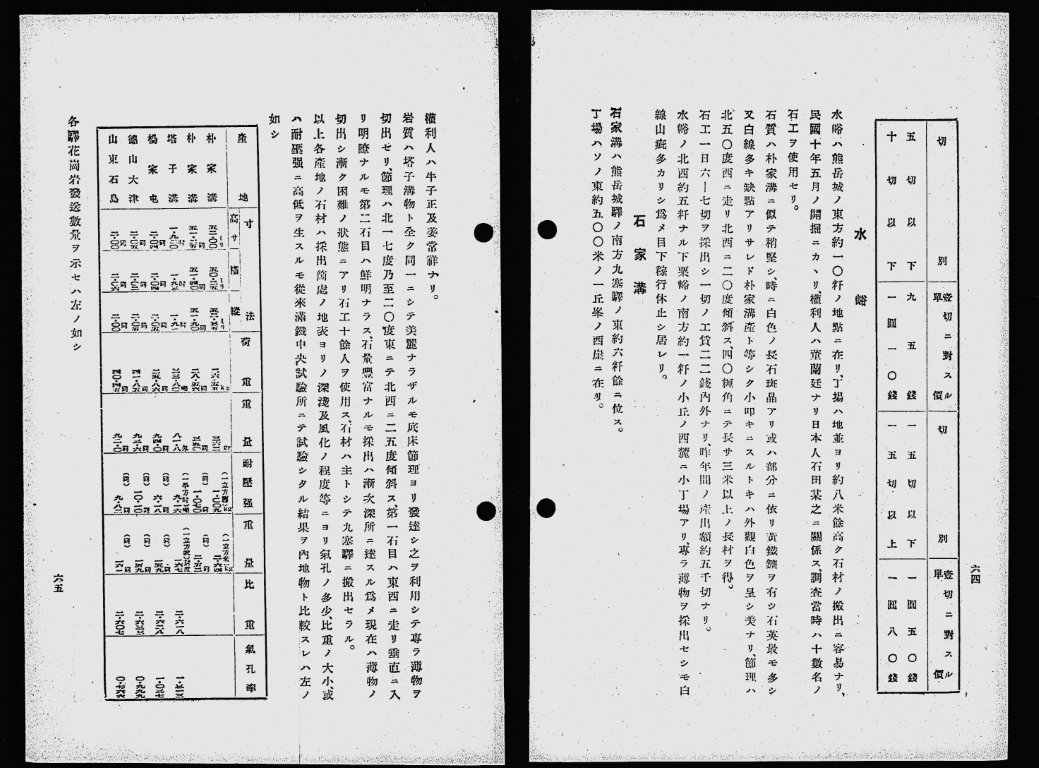 六四
切別　壹切ニ對スル單價　切別　壹切ニ對スル單價
五切以下　九五錢　一五切以下　一圓五〇錢
十切以下　一圓一〇錢　一五切以上　一圓八〇錢
水峪
水峪ハ熊岳城ノ東方約一〇粁ノ地點ニ在リ、丁場ハ地並ヨリ約八米餘高ク石材ノ搬出ニ容易ナリ、
民國十年五月ノ開掘ニカヽリ、權利人ハ董蘭廷ナリ日本人石田某之ニ關係ス、調査當時ハ十數名ノ
石工ヲ使用セリ。
石質ハ朴家溝ニ似テ稍堅シ、時ニ白色ノ長石斑晶アリ或ハ部分ニ依リ黃鐵鑛ヲ有シ石英最モ多シ
又白線多キ缺點アリサレド朴家溝產ト等シク小叩キニスルトキハ外觀白色ヲ呈シ美ナリ、節理ハ
北五〇度西ニ走リ北西ニ二〇度傾斜ス、四〇糎角ニテ長サ三米以上ノ長材ヲ得。
石工一日六ー七切ヲ採出シ一切ノ工賃二二錢內外ナリ、昨年間ノ產出額約五千切ナリ。
水峪ノ北西約五粁ナル下栗峪ノ南方約一粁ノ小丘ノ西麓ニ小丁場アリ、專ラ薄物ヲ採出セシモ白
線山疵多カリシ爲メ目下稼行休止シ居レリ。
石家溝
石家溝ハ熊岳城驛ノ南方九寨驛ノ東約六粁餘ニ位ス。
丁場ハソノ東約五〇〇米ノ一丘峯ノ西崖ニ在リ。
權利人ハ牛子正及姜常祥ナリ。
岩質ハ塔子溝物ト全ク同一ニシテ美麗ナラザルモ底床節理ヨリ發達シ之ヲ利用シテ專ラ薄物ヲ
切出セリ、節理ハ北一七度乃至二〇度東ニテ北西ニ二五度傾斜ス、第一石目ハ東西ニ走リ垂直ニ入
リ明瞭ナルモ第二石目ハ鮮明ナラス、石量豐富ナルモ採出ハ漸次深所ニ達スル爲メ現在ハ薄物ノ
切出シ漸ク困難ノ狀態ニアリ石工十餘人ヲ使用ス、石材ハ主トシテ九寨驛ニ搬出セラル。
以上各產地ノ石材ハ採出箇處ノ地表ヨリノ深淺及風化ノ程度等ニヨリ氣孔ノ多少、比重ノ大小、或
ハ耐壓强ニ高低ヲ生スルモ從來滿鐵中央試驗所ニテ試驗シタル結果ヲ內地物ト比較スレハ左ノ
如シ
產地　寸法　高サ　橫　縱　荷重　重量　耐壓强　重量　比重　氣孔率
朴家溝
朴家溝
塔子溝
楊家屯
德山大津
山東石島
各驛花崗岩發送數量ヲ示セハ左ノ如シ
六五